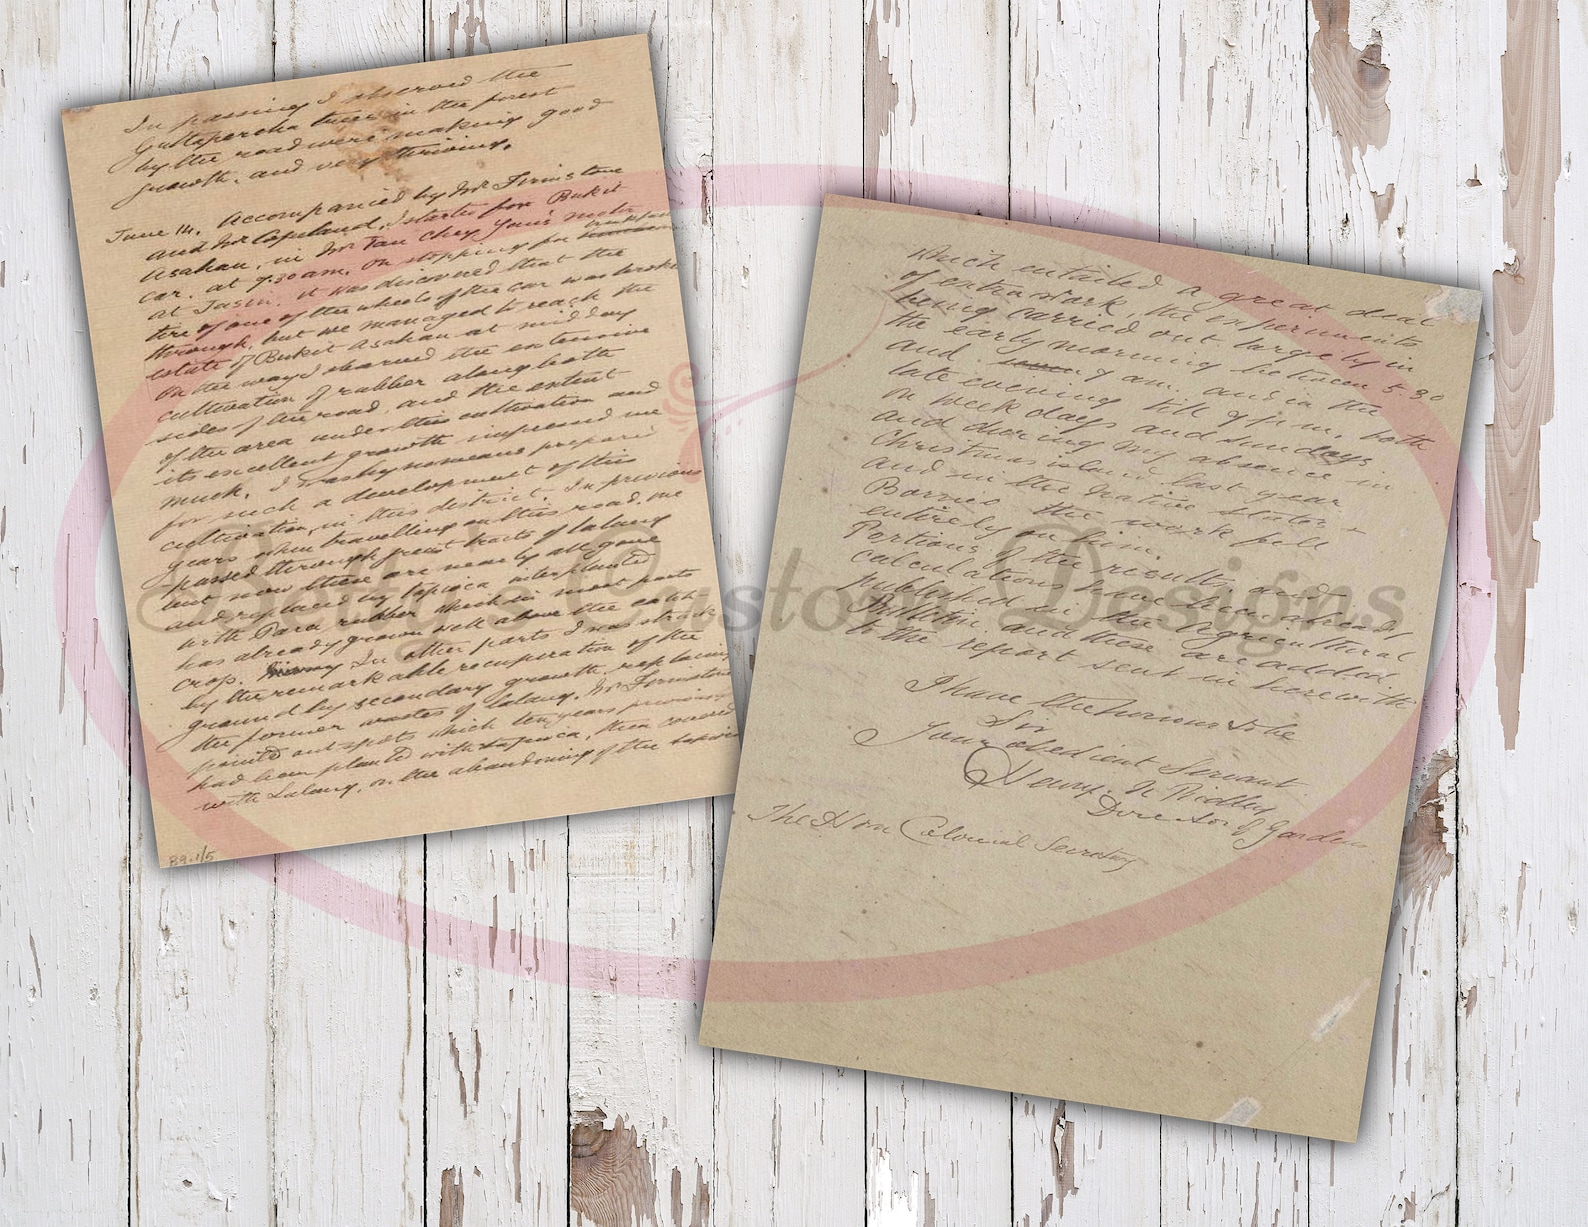 In passing I observed the
Guttapercha trees in the forest
by the road were making good
growth, and very thriving.
June 14. Accompanied by Mr Firmstone
and Mr Copeland, I started for Bukit
Asahan, in Mr Tan Chey Yan's motor
car. at 7.30 am. On stopping for
at Jasin. it was discovered that the
tire of one of the wheels of the car was broken
through, but we managed to reach the
estate of Bukit Asahan at midday
On the way I observed the extensive
cultivation of rubber along both
sides of the road, and the extent
of the area under this cultivation and
its excellent growth impressed me
much. I was by no means prepared
for such a development of this
cultivation, in this district. In previous
years when travelling on this road, one
passed through great tracts of lalang
but now these are nearly all gone
and replaced by tapioca interplanted
with Para rubber which in most parts
has already grown well above the catch
crop. In other parts I was struck
by the remarkable recuperation of the
ground by secondary growth, replacing
the former wastes of lalang. Mr Firmstone
pointed out spots which ten years previously
had been planted with tapioca, then covered
with Lalang, on the abandoning of the tapioca
89-1/5
Which entailed a great deal
of extra work, the experiments
being carried out largely in
the early morning between 5.30
and 7 am. and in the
late evening till 7 p.m. both
on week days and Sundays
and during my absence in
Christmas island last year
and in the Native States &
Borneo the work fell
entirely on him.
Portions of the results and
calculations have been already
published in the Agricultural
Bulletin and these are added
to the report sent in herewith
I have the honour to be
Sir
Your obedient Servant
Henry. N Ridley
Director of Gardens
The Hon Colonial Secretary
Custom Designs